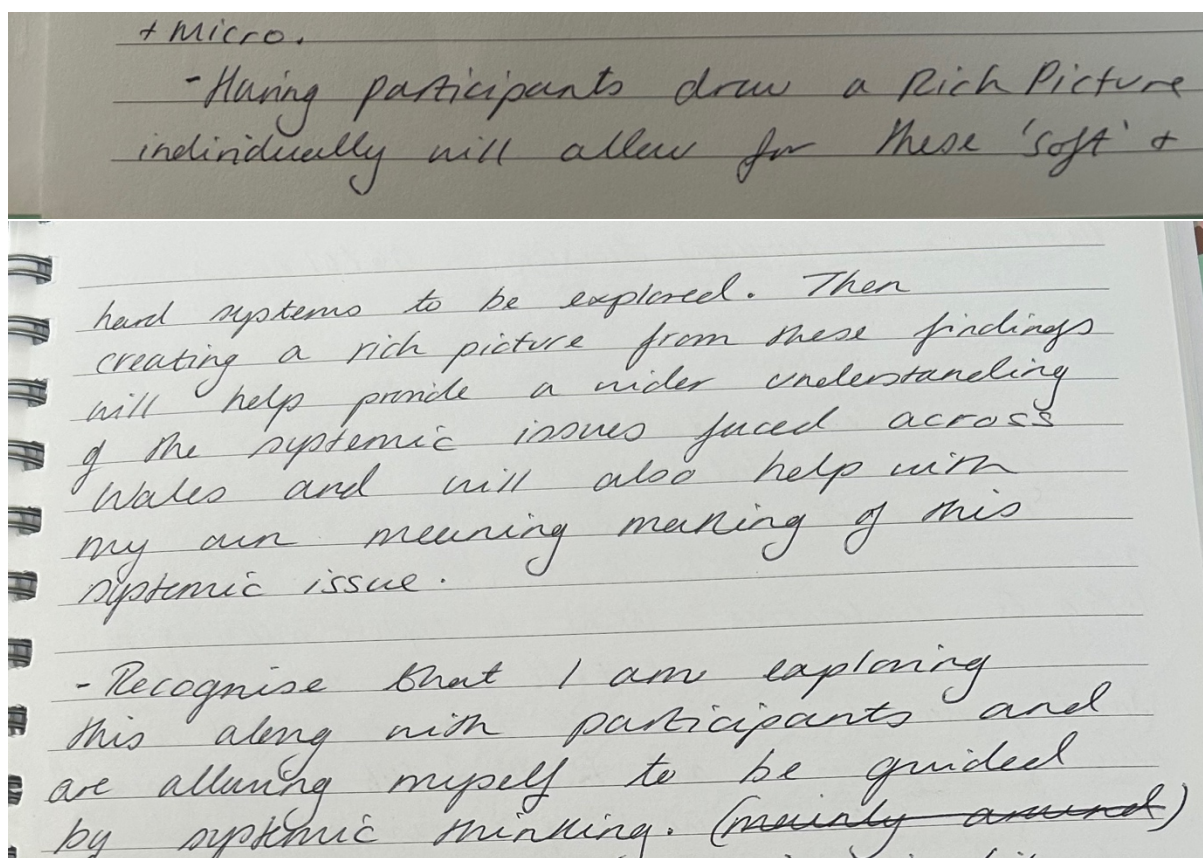 + micro.
- Having participants draw a Rich Picture
individually will allow for these 'soft' +
hard systems to be explored. Then
creating a rich picture from these findings
will help provide a wider understanding
of the systemic issues faced across
Wales and will also help with
my own meaning making of this
systemic issue.
- Recognise that I am exploring
this along with participants and
are allowing myself to be guided
by systemic thinking. (mainly around)